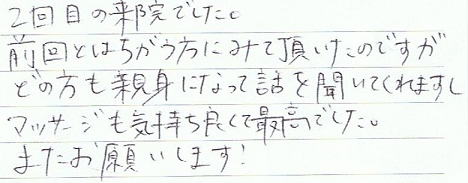 2回目の来院でした。
前回とはちがう方にみて頂いたのですが
どの方も親身になって話を聞いてくれますし
マッサージも気持ち良くて最高でした。
またお願いします!